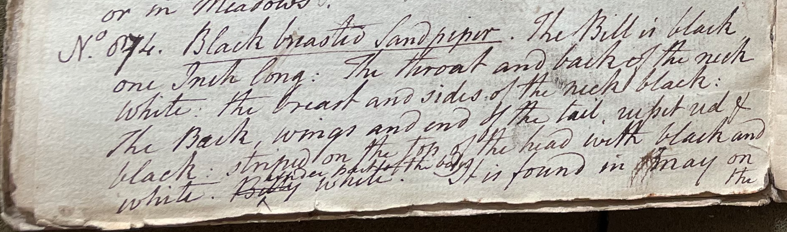 or in Meadows.
No. 74. Black breasted Sandpiper. The Bill is black
one Inch long: The throat and back of the neck
white: the breast and sides of the neck black:
The Back, wings and end of the tail, rufset red &
black: striped on the top of the head with black and
white. under part of the body white. It is found in may on
the